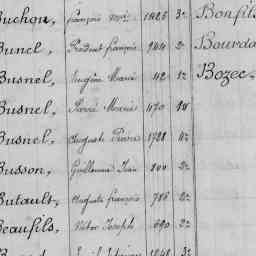 Buchon, François Mie 1825 3e Bonfils
Bunel, Prudent François 244 2e Bourda
Busnel, Eugène Marie 112 1e Bozec
Busnel, Pierre Marie 1170
Busnel, Auguste Pierre 1788
Busson, Guillaume Jean 2e
Butault, Auguste François 786 2e
Beaufils, Victor Joseph 690 2e
1848 3e